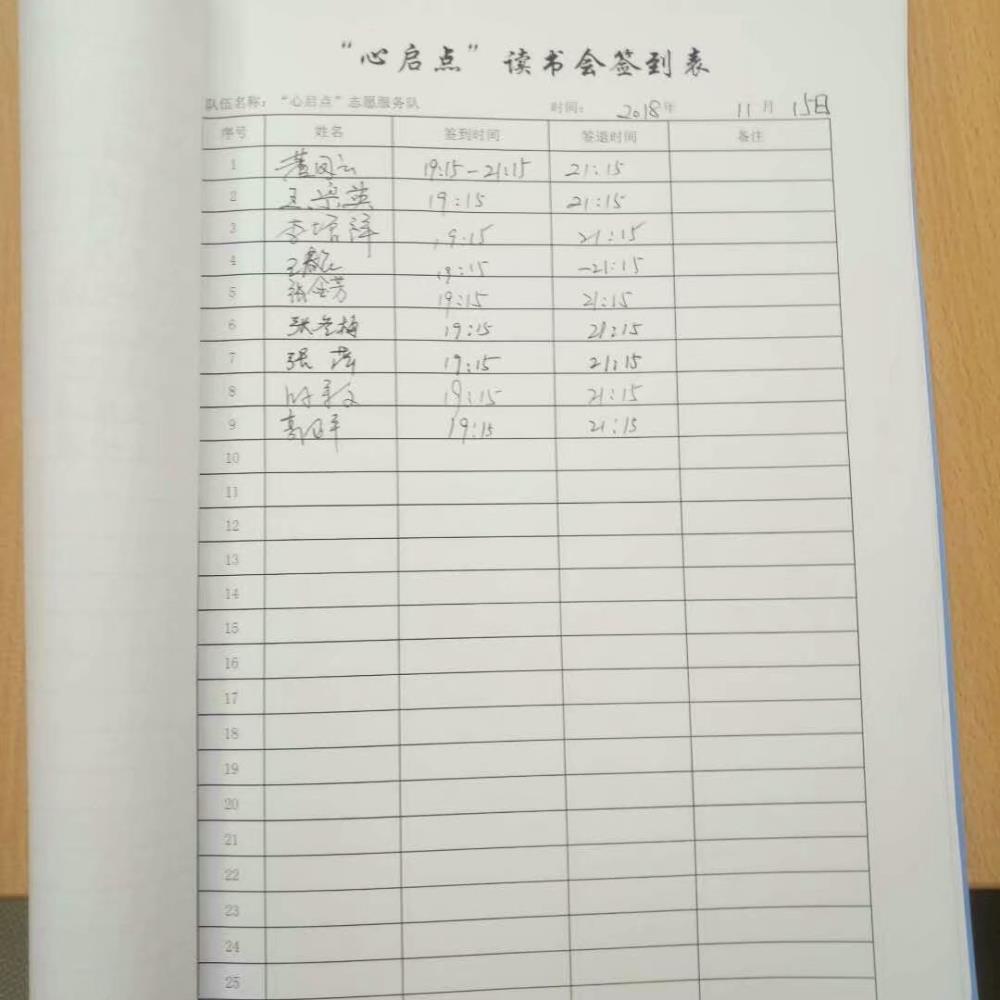 “心启点”读书会签到表
队伍名称：“心启点”志愿服务队 时间： 2018年 11月 15日
序号 姓名 签到时间 签退时间 备注
1 19:15-21:15 21:15
2 王宗英 19:15 21:15
3 李培祥 19:15 21:15
4 王 19:15 -21:15
5 张金芳 19:15 21:15
6 张冬梅 19:15 21:15
7 张萍 19:15 21:15
8 19:15 21:15
9 19:15 21:15
10
11
12
13
14
15
16
17
18
19
20
21
22
23
24
25